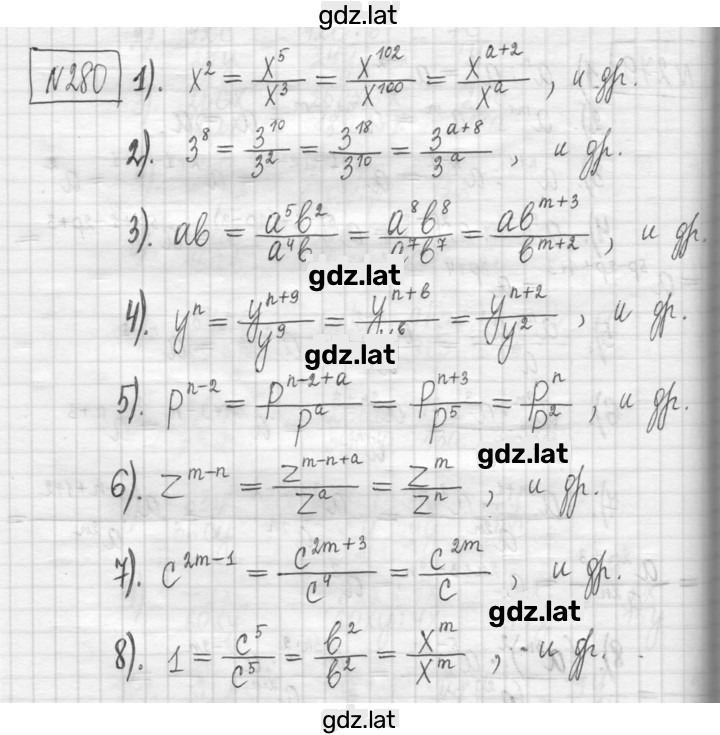 gdz.lat
№280 1). x² = x⁵/x³ = x¹⁰²/x¹⁰⁰ = xᵃ⁺²/xᵃ, и др.
2). 3⁸ = 3¹⁰/3² = 3¹⁸/3¹⁰ = 3ᵃ⁺⁸/3ᵃ, и др.
3). aв = a⁵в²/a⁴в = a⁸в⁸/a⁷в⁷ = aв^(m+3)/в^(m+2), и др.
gdz.lat
4). yⁿ = y^(n+9)/y⁹ = y^(n+в)/yв = y^(n+2)/y², и др.
gdz.lat
5). p^(n-2) = p^(n-2+a)/p^a = p^(n+3)/p⁵ = pⁿ/p², и др.
gdz.lat
6). z^(m-n) = z^(m-n+a)/z^a = z^m/z^n, и др.
7). c^(2m-1) = c^(2m+3)/c⁴ = c^(2m)/c, и др.
gdz.lat
8). 1 = c⁵/c⁵ = в²/в² = x^m/x^m, и др.
gdz.lat